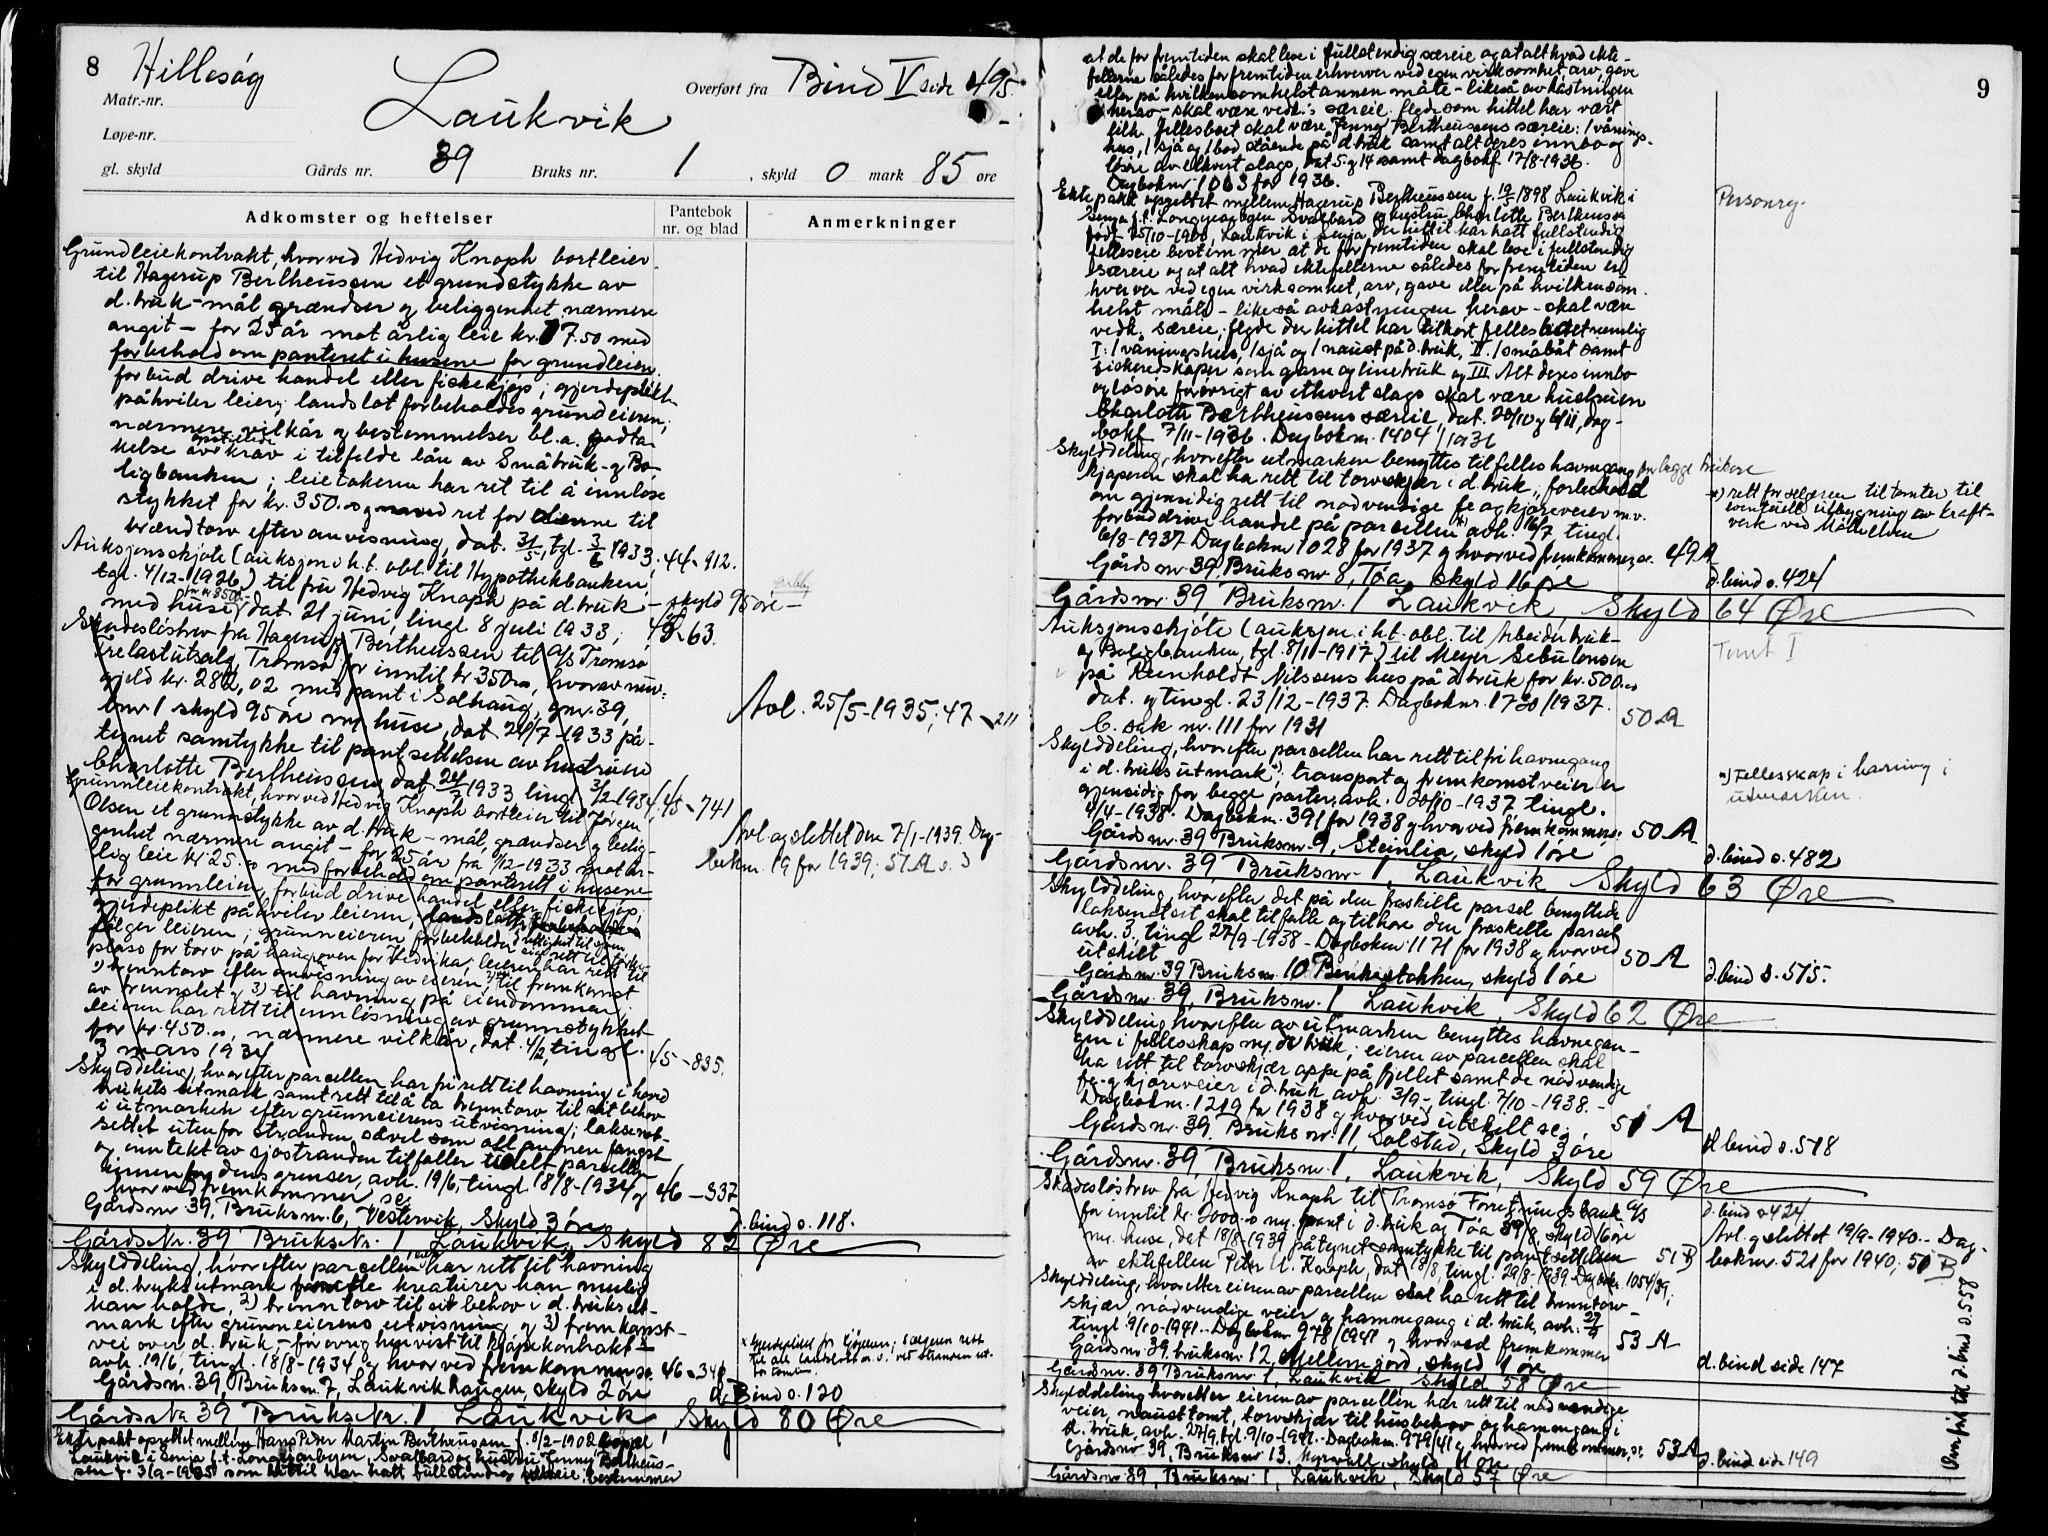 8 Hillesøy
Overført fra Bind V side 495.
Matr.-nr.
Laukvik
Løpe-nr.
gl. skyld Gårds nr. 39 Bruks nr. 1, skyld 0 mark 85 øre
Adkomster og heftelser
Pantebok nr. og blad
Anmerkninger
Grundleiekontrakt, hvorved Hedvig Knoph bortleier
til Hagerup Bertheussen et grundstykke av
d. bruk - mål grændser og beliggenhet nærmere
angit - for 25 år mot årlig leie kr. 7.50 med
forbehold om panteret i husene for grundleien.
forbud drive handel eller fiskekjøp; gjerdeplikt
påhviler leier; landslot forbeholdes grundeieren;
nærmere vilkår og bestemmelser bl.a. godta-
kelse av opstillede krav i tilfelde lån av Småbruk- og Bo-
ligbanken; leietakeren har ret til å innløse
stykket for kr. 350.- og ret for eierne til
brændtorv efter anvisning, dat. 31/5, tgl. 3/6 1933. 44-912.
Auksjonsskjøte (auksjon i h.t. obl. til Hypothekbanken,
tgl. 4/12-1926) til fru Hedvig Knoph på d. bruk - skyld 95 øre -
med huse for kr 850.- dat 21 juni, tingl 8 juli 1933; 45-63.
Skadesløsbrev fra Hagerup Bertheussen til A/S Tromsø
Trelastutsalg, Tromsø for inntil kr 350.-, hvorav nuv.
gjeld kr. 282,02 med pant i Solhaug, gnr. 39,
bnr 1 skyld 95 øre m/ huse, dat 24/7-1933 på-
tegnet samtykke til pantsettelsen av hustruen
Charlotte Bertheussen dat. 24/7 1933 tingl 3/2-1934, 45-741
Avl. 25/5-1935; 47-211
Grunnleiekontrakt, hvorved Hedvig Knoph bortleier til Jørgen
Olsen et grunnstykke av d. bruk - mål, grændser og belig-
genhet nærmere angit - for 25 år fra 1/12-1933 mot år-
lig leie kr 25.- med forbehold om panterett i husene
for grunnleien, forbud drive handel eller fiskekjøp,
gjerdeplikt påhviler leieren,
følger leieren; grunneieren forbeholder
plass for torv på haug oven for Hedvika; leieren har rett til
1) brenntorv efter anvisning av eieren, 2) til fremkomst
av brenslet og 3) til havning på eiendommen;
leieren har rett til innløsning av grunnstykket
for kr. 450.-, nærmere vilkår, dat. 4/2, tingl.
3 mars 1934 45-835.
Avl og slettet den 7/1-1939. Dag-
bokn. 19 for 1939; 51A s. 3
Skylddeling, hvorefter parcellen har fri rett til havning i hoved
brukets utmark samt rett til å ta brenntorv til sit behov
i utmarken efter grunneierens utvisning; laksenot-
settet utenfor stranden, såvel som all annen fangst
og inntekt av sjøstranden tilfaller utdelt parcellen
innenfor dens grenser, avh. 19/6, tingl 18/8-1934 og 46-337
hvorved fremkommer se
Gårdsnr. 39, Bruksnr. 6, Vestervik, skyld 3 øre d. bind s. 118.
Gårds Nr. 39 Bruks Nr. 1 Laukvik, Skyld 82 Øre
Skylddeling, hvorefter parcellen har rett til havning
i d. bruks utmark for de kreaturer han mulig
kan holde, 2) brenntorv til sit behov i d. bruks ut-
mark efter grunneierens utvisning og 3) fremkomst-
vei over d. bruk, - forøvrig henvist til kjøpekontrakt -
avh. 19/6, tingl. 18/8-1934 og hvorved fremkommer se. 46-340
Gårdsnr. 39, Bruksnr. 7, Laukvikhaugen, skyld 2 øre d. Bind s. 120
x Gjerdeplikt for kjøperen; sælgeren rett
til all landslott o.s.v. ved stranden ut-
for tomten.
Gårds Nr 39 Bruks Nr. 1 Laukvik Skyld 80 Øre
Ektepakt oprettet mellem Hans Peder Martin Bertheussen f. 8/2-1902
Laukvik i Senja f.t. Longyearbyen, Svalbard og hustru Jenny Bertheus-
sen f. 3/9-1905 som hittil har hatt fullstendig felleie, bestemmer
9
at de for fremtiden skal leve i fullstendig særeie og at alt hvad ekte-
fellerne således for fremtiden erhverver ved egen virksomhet, arv, gave
eller på hvilkensomhelst annen måte - likeså avkastningen
herav - skal være vedk.'s særeie. flgde som hittil har vært
tilh. fellesboet skal være Jenny Bertheussens særeie: 1 vånings-
hus, 1 sjå og 1 bod stående på d. bruk samt alt deres innbo og
løsøre av ethvert slags, dat 5. og 14 samt dagbokf. 17/8-1936.
Dagboknr. 1063 for 1936.
Ektepakt opprettet mellem Hagerup Bertheussen f. 19/2 1898 Laukvik i
Senja f.t. Longyearbyen Svalbard og hustru Charlotte Bertheussen
født 25/10-1900 Laukvik i Senja, der hittil har hatt fullstendig
felleseie bestemmer at de for fremtiden skal leve i fullstendig
særeie og at alt hvad ektefellerne således for fremtiden er-
hverver ved egen virksomhet, arv, gave eller på hvilkensom-
helst måte - likeså avkastningen herav - skal være
vedk. særeie. flgde der hittil har tilhørt fellesboet nemlig
I: 1 våningshus, 1 sjå og 1 naust på d. bruk, II. 1 småbåt samt
fiskeredskaper som garn og linebruk og III Alt deres innbo
og løsøre forøvrigt av ethvert slags skal være hustruen
Charlotte Bertheussens særeie, dat. 20/10 og 6/11, dag-
bokf. 7/11-1936. Dagboknr. 1404/1936
Personreg.
Skylddeling, hvorefter utmarken benyttes til felles havnegang for begge brukene
kjøperen skal ha rett til torvskjær i d. bruk, forbehold
om gjensidig rett til nødvendige fe og kjøreveier m.v.
forbud drive handel på parcellen x) avh. 16/7 tingl.
6/8-1937 Dagboknr 1028 for 1937 og hvorved fremkommer, se. 49A
Gårds nr 39 Bruks nr 8, Tøa, skyld 16 øre d. bind s. 424
x) rett for selgeren til tomter til
eventuell utbygning av kraft-
verk ved Møllelven
Gårdsnr. 39 Bruksnr. 1 Laukvik, Skyld 64 Øre
Auksjonsskjøte (auksjon i h.t. obl. til Arbeiderbruk-
og Boligbanken, tgl. 8/11-1917) til Meyer Sebulonsen
på Reinholdt Nilssens hus på d. bruk for kr. 500.-
dat. og tingl. 23/12-1937. Dagboknr. 1720/1937. 50A
C. sak nr. 111 for 1931
Tomt I
Skylddeling, hvorefter parcellen har rett til fri havnegang
i d. bruks utmark x); transport og fremkomstveier er
gjensidig for begge parter, avh. 20/10-1937 tingl.
4/4-1938. Dagboknr. 391 for 1938 og hvorved fremkommer 50A
Gårdsnr. 39 Bruksnr. 9, Steinlia, skyld 1 øre d. bind s. 482
x) Fellesskap i havning i
utmarken.
Gårdsnr. 39 Bruksnr. 1, Laukvik Skyld 63 Øre
Skylddeling, hvorefter det på den fraskilte parsel benyttede
laksenotset skal tilfalle og tilhøre den fraskilte parsel
avh. 3., tingl 27/9-1938 - Dagboknr. 1171 for 1938 og hvorved 50A
utskilt
Gårdsnr. 39 Bruksnr. 10 Benkestokken, skyld 1 øre d. bind s. 515.
Gårdsnr. 39, Bruksnr. 1 Laukvik, Skyld 62 Øre
Skylddeling hvorefter av utmarken benyttes havnegan-
gen i fellesskap m/ d. bruk; eieren av parcellen skal
ha rett til torvskjær oppe på fjellet samt de nødvendige
fe- og kjøreveier i d. bruk, avh. 3/9-, tingl. 7/10-1938. -
Dagboknr. 1219 for 1938 og hvorved utskilt se: 51 A
Gårdsnr. 39, Bruks nr. 11, Solstad, skyld 3 øre d. bind s. 518
Gårdsnr. 39, Bruksnr. 1, Laukvik, Skyld 59 Øre
Skadesløsbrev fra Hedvig Knoph til Tromsø Forretningsbank A/S
for inntil kr. 2000.- m/ pant i d. bruk og Tøa 39/8, skyld 16 øre
m. huse, dat 18/8-1939 påtegnet samtykke til pantsettelsen
av ektefellen Peter A. Knoph, dat 18/8, tingl. 29/8-1939 Dagboknr. 1054/39; 51B
d. bind s 424
Avl. og slettet 19/9-1940. Dag-
boknr. 521 for 1940; 50
Skylddeling, hvoretter eieren av parcellen skal ha rett til brenntorv-
skjær, nødvendige veier og hamnegang i d. bruk, avh. 27/9
tingl 9/10-1941. - Dagboknr 978/1941 og hvorved fremkommer 53 A
Gårdsnr. 39, bruksnr. 12, Mellemjord, skyld 1 øre d. bind side 147
Gårdsnr. 39 Bruksnr. 1, Laukvik skyld 58 Øre
Skylddeling hvoretter eieren av parcellen har rett til nødvendige
veier, nausttomt, torvskjær til husbehov og hamnegang i
d. bruk, avh. 27/9, tgl. 9/10-1941. - Dagboknr. 979/41 og hvorved fremkommer, se 53A
Gårdsnr 39, Bruksnr 13, Myrvall, skyld 1 øre d. bind side 149
Gårdsnr 39, Bruksnr. 1, Laukvik, Skyld 57 Øre
Overført til d. bind s. 558